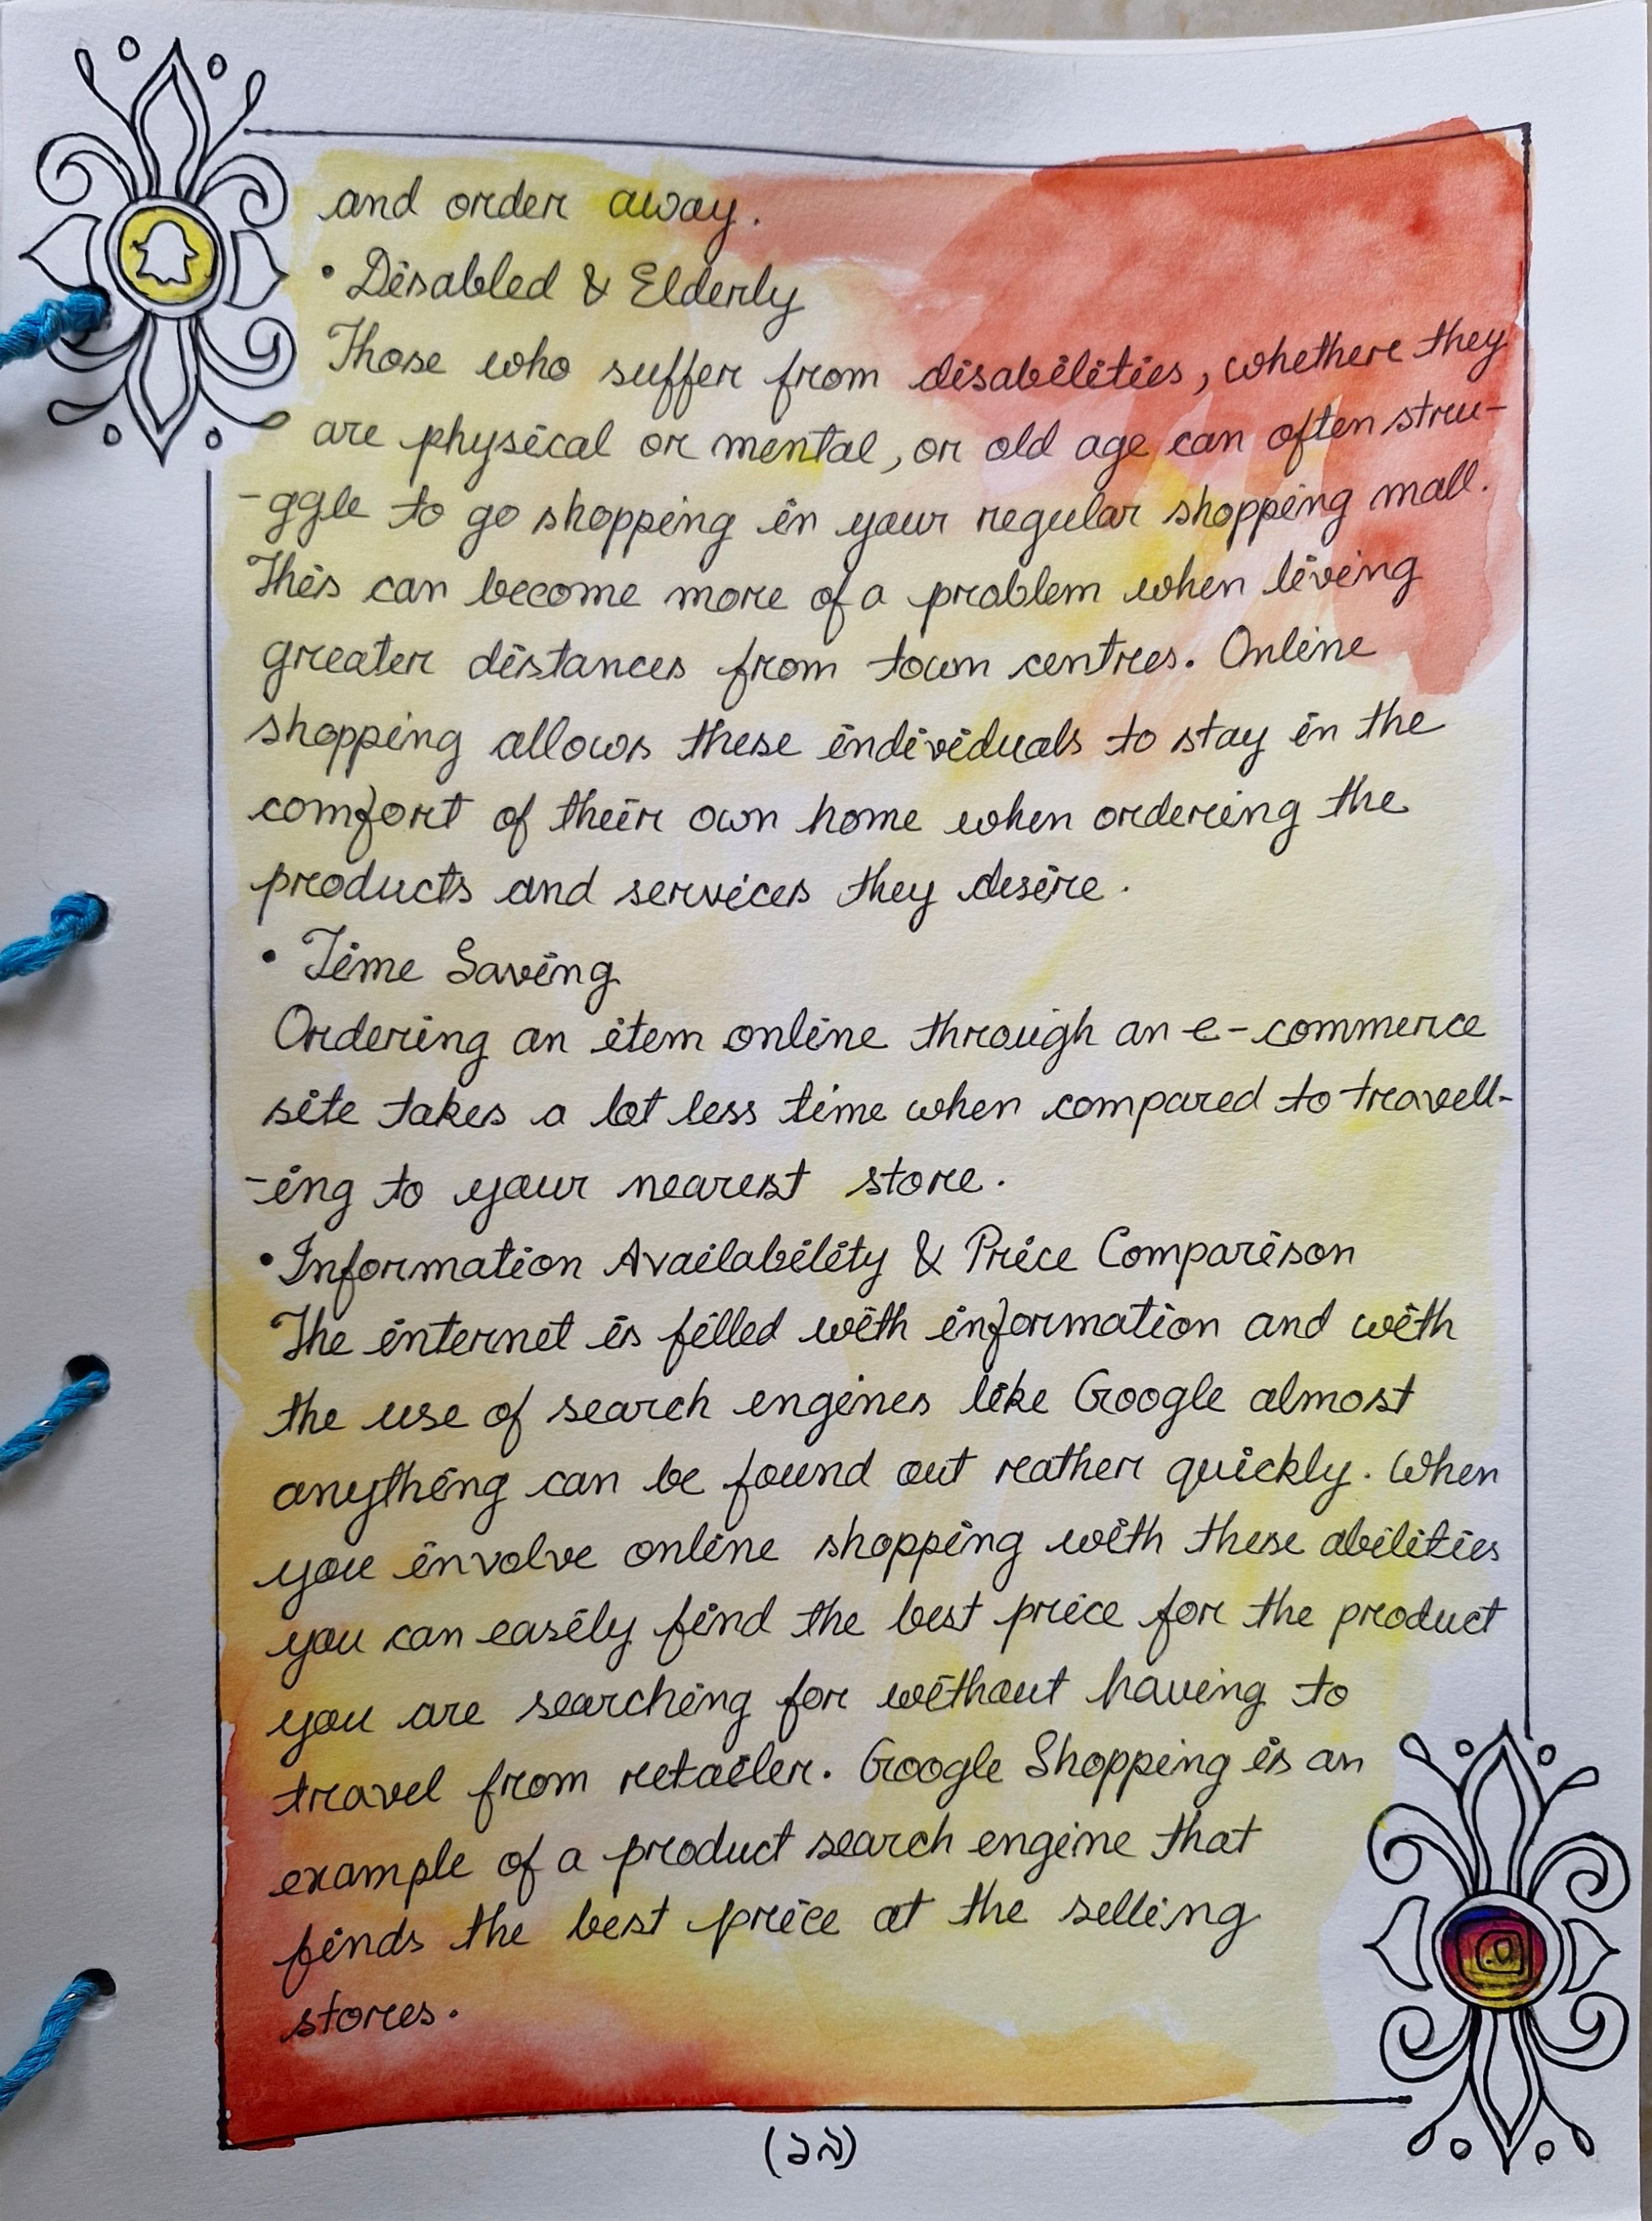 and order away.
• Disabled & Elderly
Those who suffer from disabilities, whether they
are physical or mental, or old age can often stru-
-ggle to go shopping in your regular shopping mall.
This can become more of a problem when living
greater distances from town centres. Online
shopping allows these individuals to stay in the
comfort of their own home when ordering the
products and services they desire.
• Time Saving
Ordering an item online through an e-commerce
site takes a lot less time when compared to travell-
-ing to your nearest store.
• Information Availability & Price Comparison
The internet is filled with information and with
the use of search engines like Google almost
anything can be found out rather quickly. When
you involve online shopping with these abilities
you can easily find the best price for the product
you are searching for without having to
travel from retailer. Google Shopping is an
example of a product search engine that
finds the best price at the selling
stores.
(১৯)